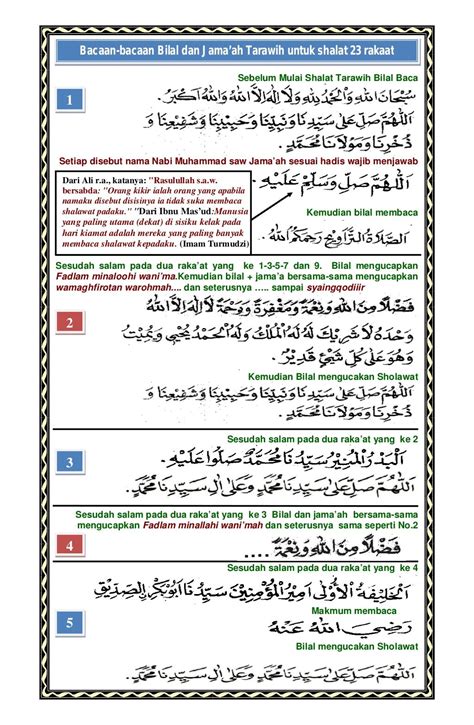 Bacaan-bacaan Bilal dan Jama'ah Tarawih untuk shalat 23 rakaat
Sebelum Mulai Shalat Tarawih Bilal Baca
1
سُبْحَانَ اللهِ وَالْحَمْدُ لِلّٰهِ وَلَا اِلٰهَ اِلَّا اللهُ وَاللهُ اَكْبَرُ.
اَللّٰهُمَّ صَلِّ عَلٰى سَيِّدِنَا وَنَبِيِّنَا وَحَبِيْبِنَا وَشَفِيْعِنَا وَ
ذُخْرِنَا وَمَوْلَانَا مُحَمَّدٍ
Setiap disebut nama Nabi Muhammad saw Jama'ah sesuai hadis wajib menjawab
Dari Ali r.a., katanya: "Rasulullah s.a.w.
bersabda: "Orang kikir ialah orang yang apabila
namaku disebut disisinya ia tidak suka membaca
shalawat padaku." "Dari Ibnu Mas'ud:Manusia
yang paling utama (dekat) di sisiku kelak pada
hari kiamat adalah mereka yang paling banyak
membaca shalawat kepadaku. (Imam Turmudzi)
اَللّٰهُمَّ صَلِّ وَسَلِّمْ عَلَيْهِ.
Kemudian bilal membaca
اَلصَّلَاةَ التَّرَاوِيْحِ رَحِمَكُمُ اللهُ
Sesudah salam pada dua raka'at yang ke 1-3-5-7 dan 9. Bilal mengucapkan
Fadlam minaloohi wani'ma.Kemudian bilal + jama'a bersama-sama mengucapkan
wamaghfirotan warohmah.... dan seterusnya ..... sampai syaingqodiiir
2
فَضْلًا مِنَ اللهِ وَنِعْمَةً وَمَغْفِرَةً وَرَحْمَةً لَا اِلٰهَ اِلَّا اللهُ
وَحْدَهُ لَا شَرِيْكَ لَهُ لَهُ الْمُلْكُ وَلَهُ الْحَمْدُ يُحْيِيْ وَيُمِيْتُ
وَهُوَ عَلٰى كُلِّ شَيْءٍ قَدِيْرٌ.
Kemudian Bilal mengucakan Sholawat
اَللّٰهُمَّ صَلِّ عَلٰى سَيِّدِنَا وَنَبِيِّنَا وَحَبِيْبِنَا وَشَفِيْعِنَا وَ
ذُخْرِنَا وَمَوْلَانَا مُحَمَّدٍ
Sesudah salam pada dua raka'at yang ke 2
3
اَلْبَدْرُ الْمُنِيْرُ سَيِّدُنَا مُحَمَّدٌ صَلُّوْا عَلَيْهِ.
اَللّٰهُمَّ صَلِّ عَلٰى سَيِّدِنَا مُحَمَّدٍ وَعَلٰى اٰلِ سَيِّدِنَا مُحَمَّدٍ.
Sesudah salam pada dua raka'at yang ke 3 Bilal dan jama'ah bersama-sama
mengucapkan Fadlam minallahi wani'mah dan seterusnya sama seperti No.2
4
فَضْلًا مِنَ اللهِ وَنِعْمَةً ....
Sesudah salam pada dua raka'at yang ke 4
5
اَلْخَلِيْفَةُ الْاُوْلٰى اَمِيْرُ الْمُؤْمِنِيْنَ سَيِّدُنَا اَبُوْبَكْرِ الصِّدِّيْقِ
Makmum membaca
رَضِيَ اللهُ عَنْهُ
Bilal mengucakan Sholawat
اَللّٰهُمَّ صَلِّ عَلٰى سَيِّدِنَا مُحَمَّدٍ وَعَلٰى اٰلِ سَيِّدِنَا مُحَمَّدٍ.